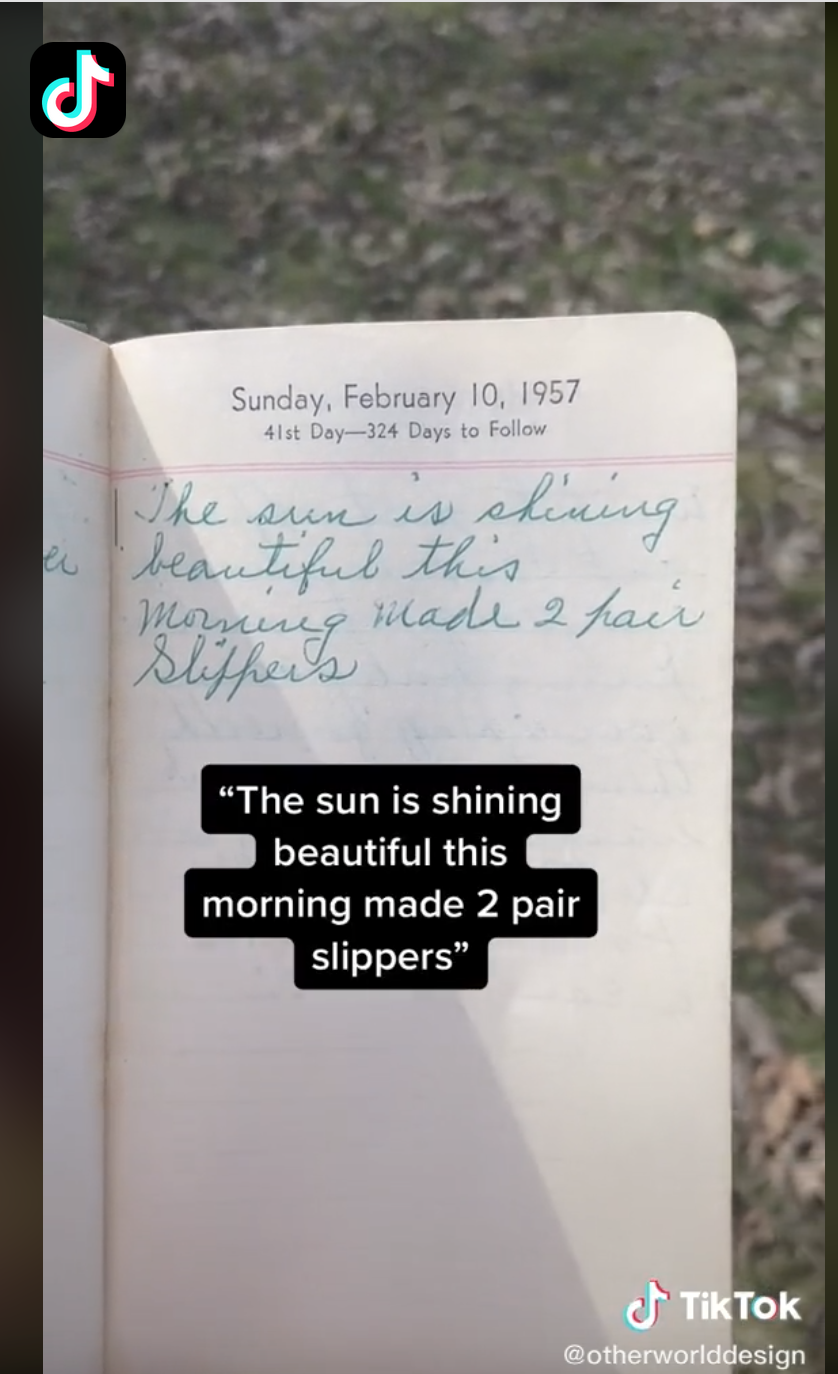 Sunday, February 10, 1957
41st Day—324 Days to Follow
The sun is shining
beautiful this
morning made 2 pair
Slippers
er
“The sun is shining
beautiful this
morning made 2 pair
slippers”
TikTok
@otherworlddesign